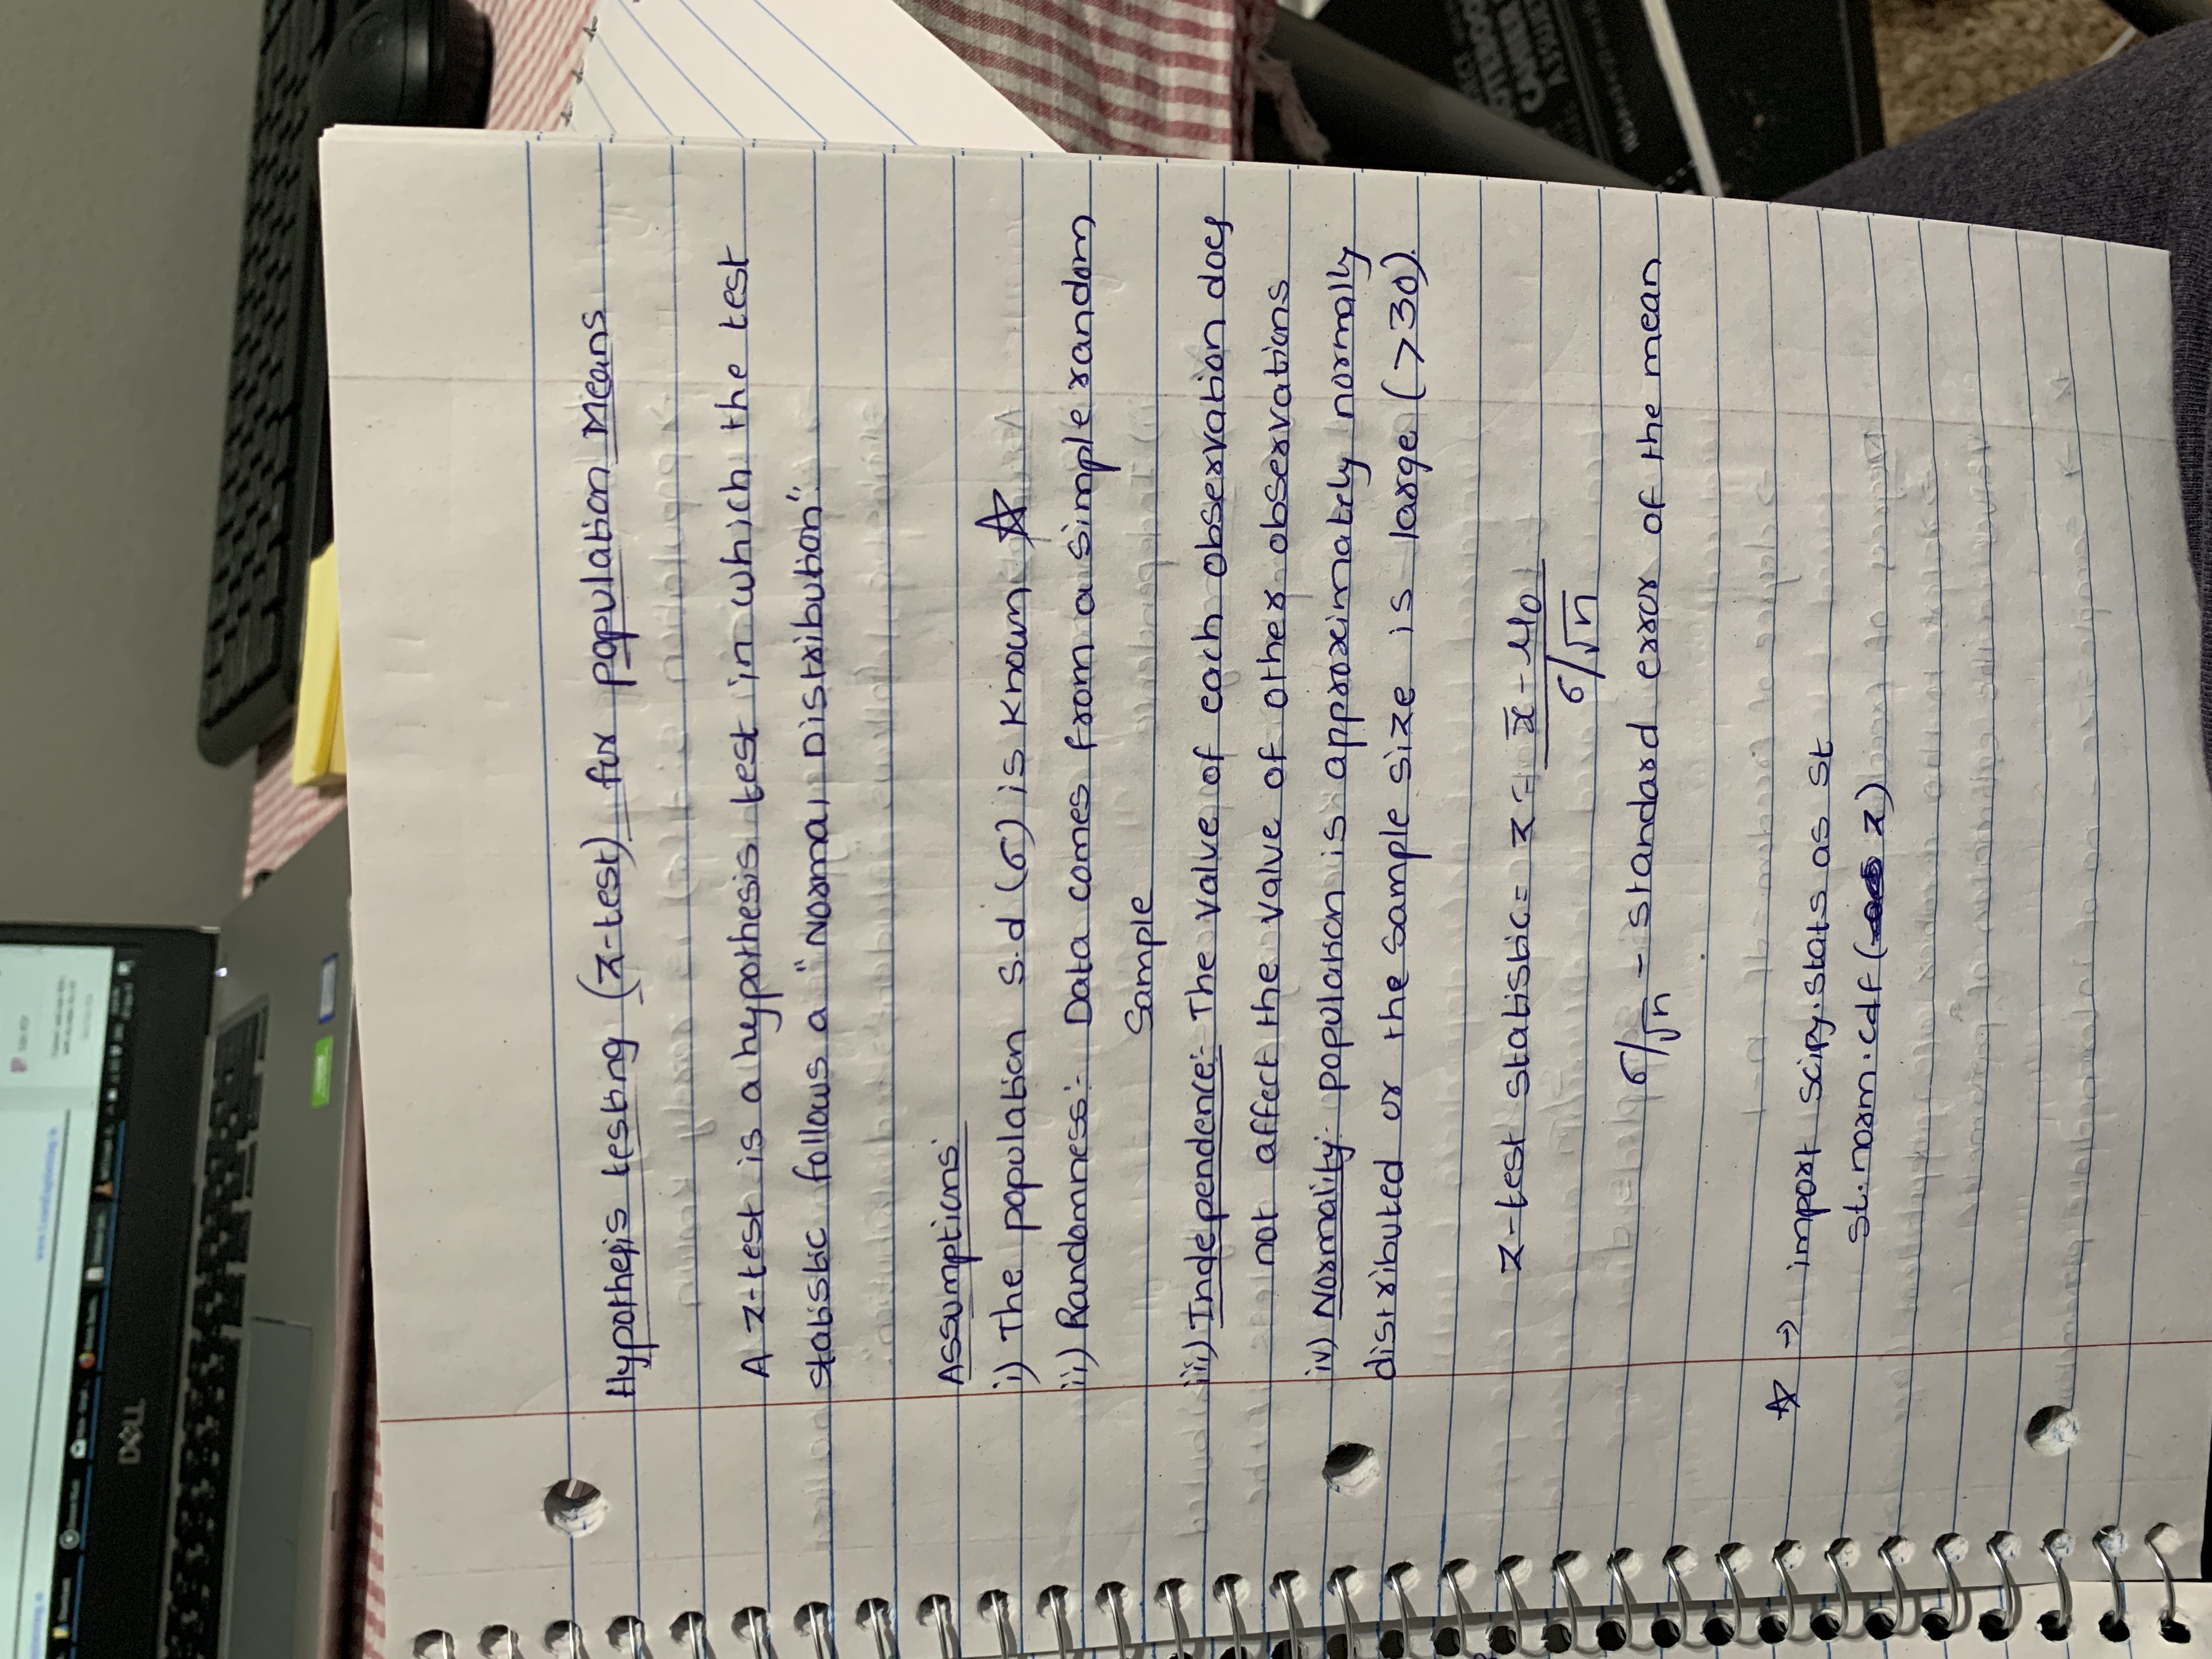 DELL
Hypothesis testing (z-test) for population Means
A z-test is a hypothesis test in which the test
statistic follows a "Normal Distribution".
Assumptions:
i) The population s.d (σ) is known ☆
ii) Randomness:- Data comes from a simple random
Sample
iii) Independence:- The value of each observation does
not affect the value of other observations
iv) Normality:- population is approximately normally
distributed or the sample size is large (>30).
z-test statistic = z = x̄ - μ0
σ/√n
σ/√n - standard error of the mean
☆ → import scipy.stats as st
st.norm.cdf( z)